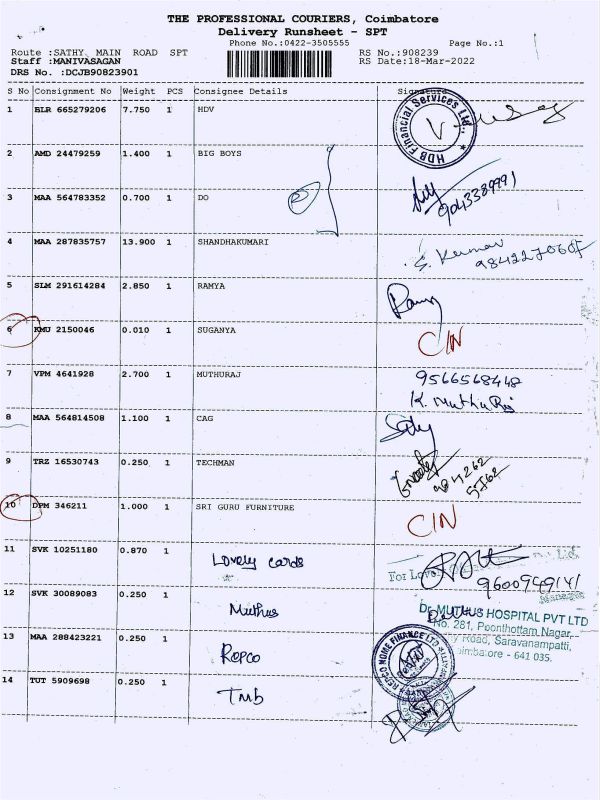 THE PROFESSIONAL COURIERS, Coimbatore
Delivery Runsheet - SPT
Phone No.:0422-3505555
Page No.:1
Route :SATHY MAIN ROAD SPT
RS No.:908239
Staff :MANIVASAGAN
RS Date:18-Mar-2022
DRS No. :DCJB90823901
S No Consignment No Weight PCS Consignee Details Signature
1 BLR 665279206 7.750 1 HDV
HDB Financial Services Ltd.
2 AMD 24479259 1.400 1 BIG BOYS
3 MAA 564783352 0.700 1 DO
9043389991
4 MAA 287835757 13.900 1 SHANDHAKUMARI
S. Kumar
5 SLM 291614284 2.850 1 RAMYA
6 KMU 2150046 0.010 1 SUGANYA CIN
7 VPM 4641928 2.700 1 MUTHURAJ 9566568448
K. Muthu Raj
8 MAA 564814508 1.100 1 CAG Sathy
9 TRZ 16530743 0.250 1 TECHMAN
984262
10 DPM 346211 1.000 1 SRI GURU FURNITURE CIN
11 SVK 10251180 0.870 1 Lovely cards
9600949141
12 SVK 30089083 0.250 1 Muthus
Dr. MUTHUS HOSPITAL PVT LTD
No. 281, Poonthottam Nagar,
Road, Saravanampatti,
Coimbatore - 641 035.
13 MAA 288423221 0.250 1 Repco
REPCO HOME FINANCE LTD
14 TUT 5909698 0.250 1 Tmb